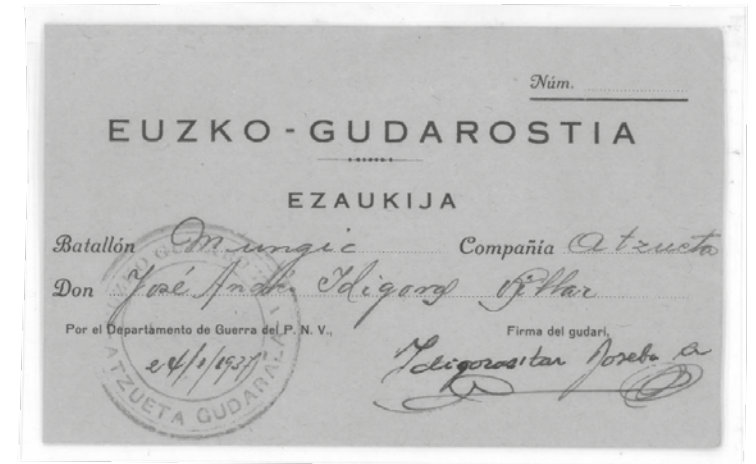 Núm.
EUZKO-GUDAROSTIA
EZAUKIJA
Batallón Mungia Compañia Atzueta
Don José Andrés Idigoras
Por el Departamento de Guerra del P. N. V., Firma del gudari,
24/1/1937 Idigorastar Joseba A
ATZUETA GUDARALA